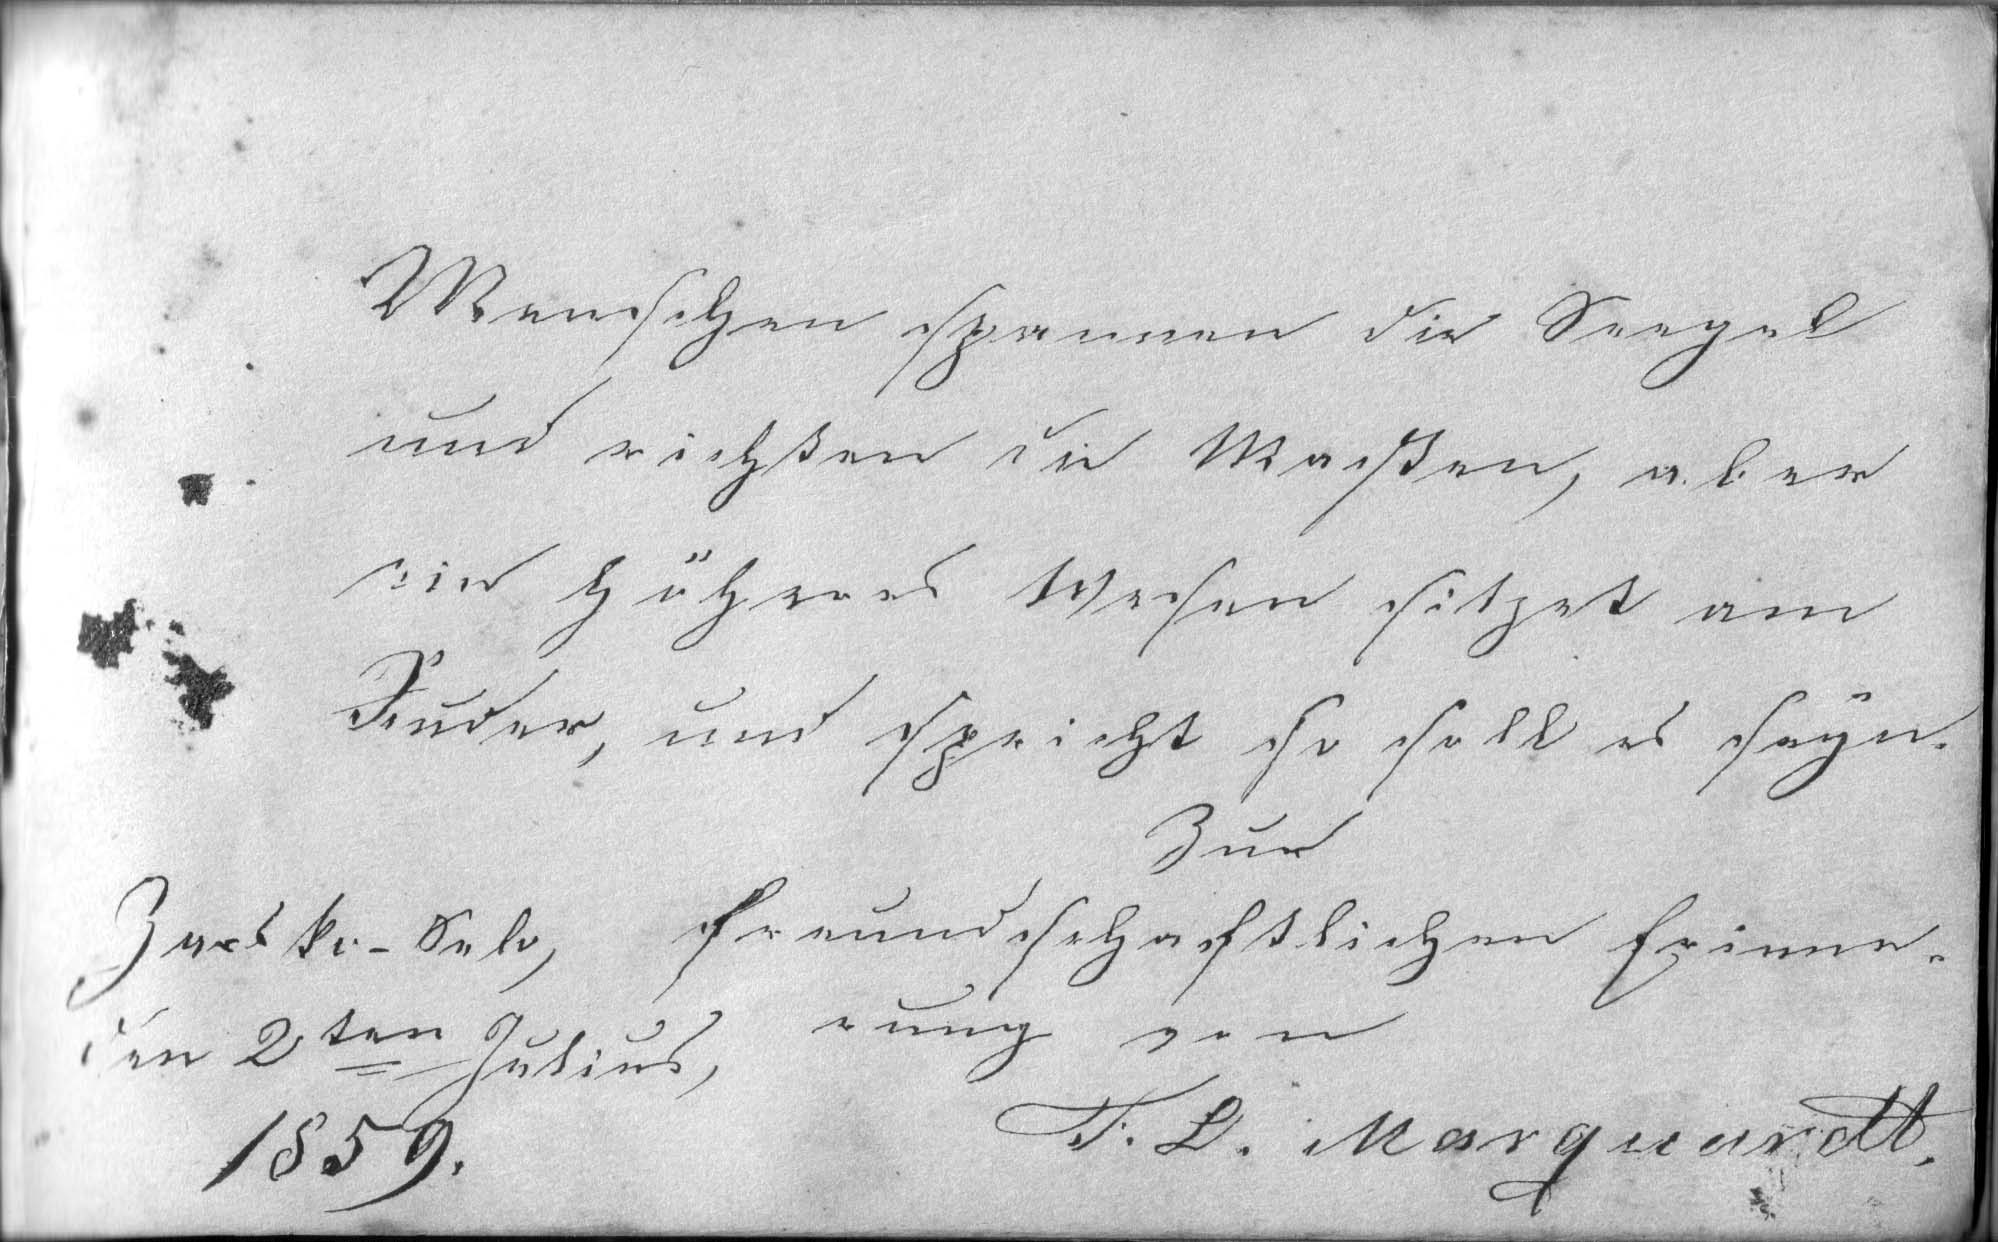 Menschen spannen die Seegel
und richten die Masten, aber
ein höheres Wesen sitzet am
Ruder, und spricht so soll es seÿn.
Zur
Zarsko-Selo, freundschaftlichen Erinne-
den 2ten Julius, rung von
1859. F. L. Marquardt.